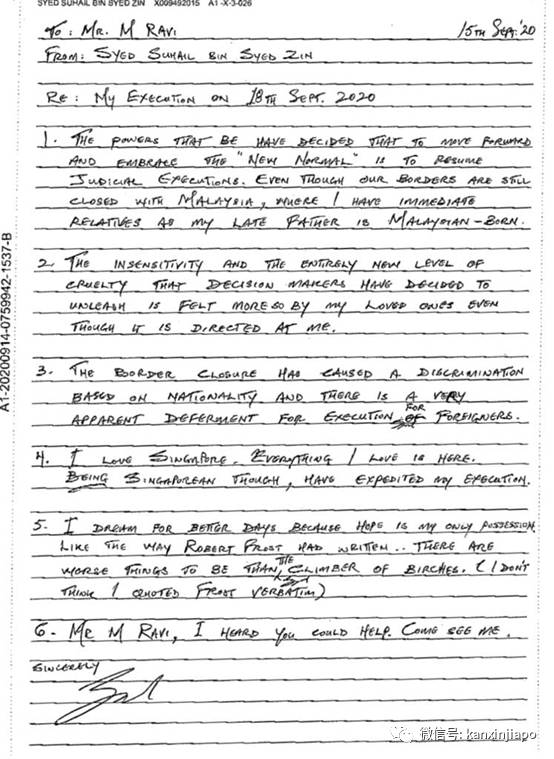 SYED SUHAIL BIN SYED ZIN X009492015 A1-X-3-026
TO: MR. M RAVI 15TH SEPT.'20
FROM: SYED SUHAIL BIN SYED ZIN
RE: MY EXECUTION ON 18TH SEPT. 2020
1. THE POWERS THAT BE HAVE DECIDED THAT TO MOVE FORWARD
AND EMBRACE THE "NEW NORMAL" IS TO RESUME
JUDICIAL EXECUTIONS. EVEN THOUGH OUR BORDERS ARE STILL
CLOSED WITH MALAYSIA, WHERE I HAVE IMMEDIATE
RELATIVES AS MY LATE FATHER IS MALAYSIAN-BORN.
2. THE INSENSITIVITY AND THE ENTIRELY NEW LEVEL OF
CRUELTY THAT DECISION MAKERS HAVE DECIDED TO
UNLEASH IS FELT MORE SO BY MY LOVED ONES EVEN
THOUGH IT IS DIRECTED AT ME.
3. THE BORDER CLOSURE HAS CAUSED A DISCRIMINATION
BASED ON NATIONALITY AND THERE IS A VERY
APPARENT DEFERMENT FOR EXECUTION FOR FOREIGNERS.
4. I LOVE SINGAPORE. EVERYTHING I LOVE IS HERE.
BEING SINGAPOREAN THOUGH, HAVE EXPEDITED MY EXECUTION.
5. I DREAM FOR BETTER DAYS BECAUSE HOPE IS MY ONLY POSSESSION.
LIKE THE WAY ROBERT FROST HAD WRITTEN.. THERE ARE
WORSE THINGS TO BE THAN THE CLIMBER OF BIRCHES. (I DON'T
THINK I QUOTED FROST VERBATIM)
6. MR M RAVI, I HEARD YOU COULD HELP. COME SEE ME.
SINCERELY
A1-20200914-0759942-1537-B
微信号: kanxinjiapo